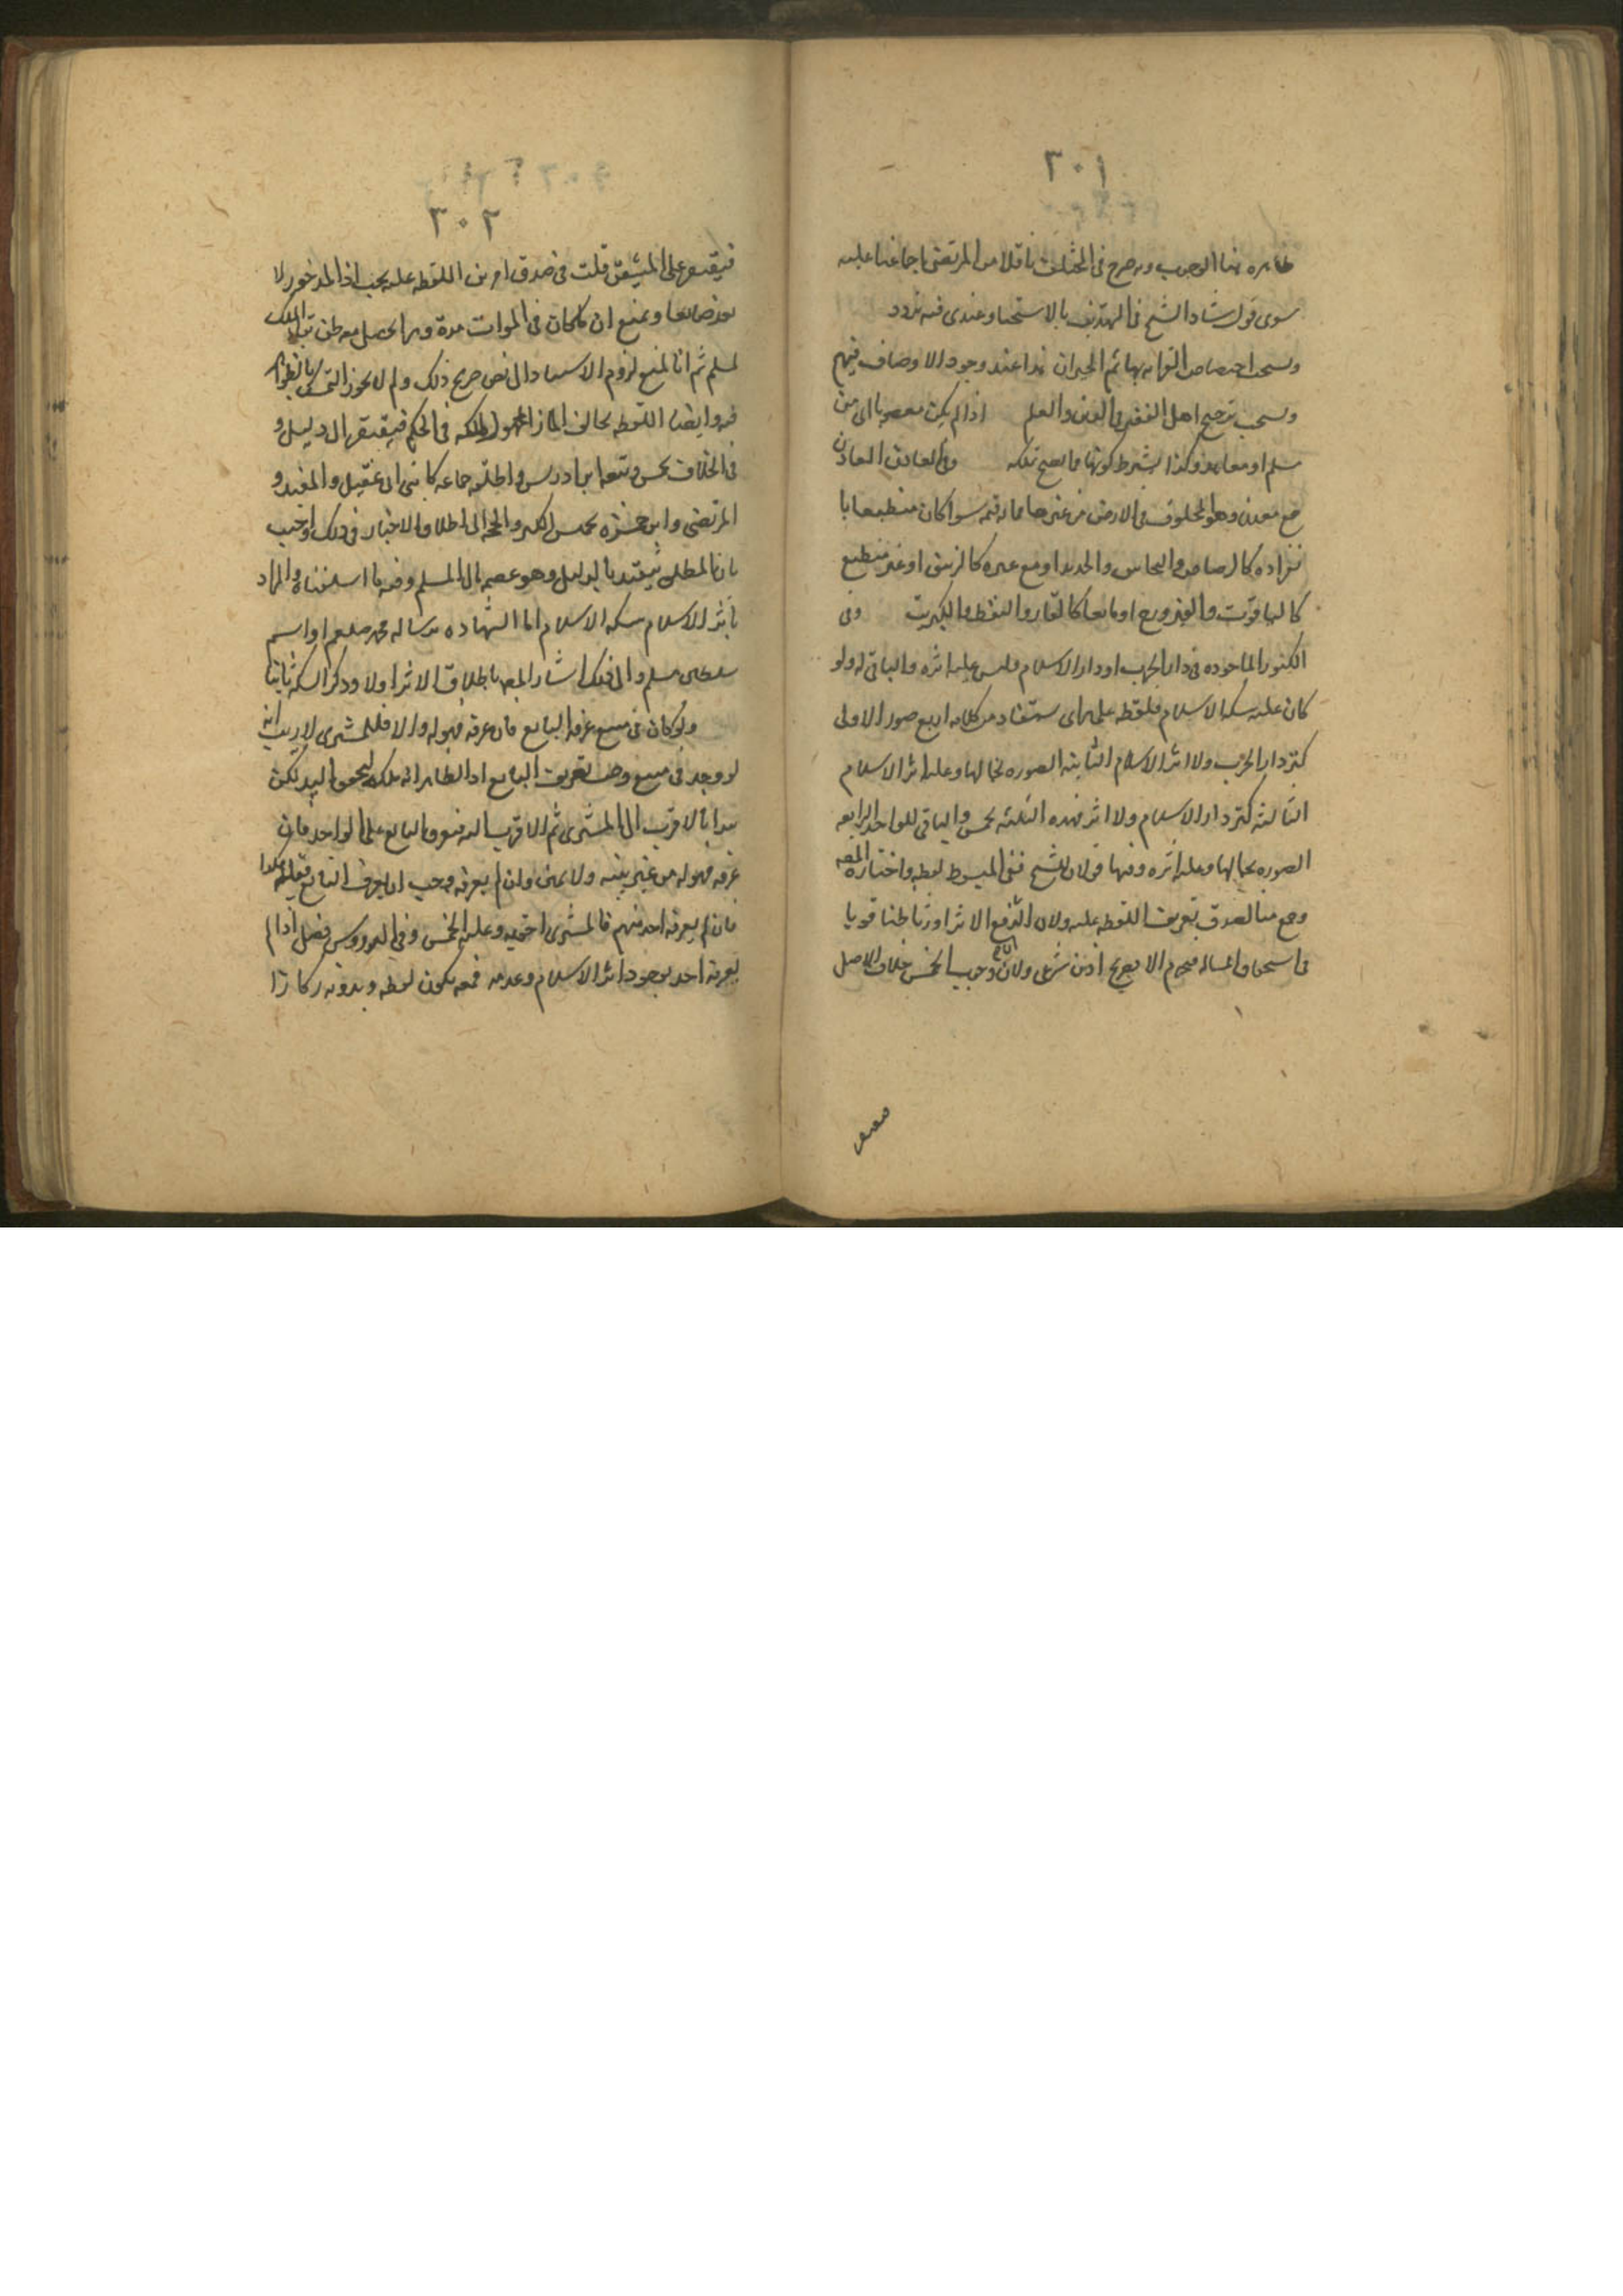 ٣٠١
ظاهره هنا الوجوب وبه صرح فى المختلف ناقلا من المرتضى اجماعنا عليه
سوى قول شاذ الشيخ فى التهذيب بالاستحباب وعندى فيه تردد
ويستحب اختصاص القرابه بها ثم الجيران هذا عند وجود الاوصاف فيهم
ويستحب ترجيح اهل الفضل فى الدين والعلم اذا لم يكن مغصوبا من
مسلم او معاهد وكذا يشترط كونها مما يصح تملكه وفى المعادن المعادن
جمع معدن وهو المخلوف فى الارض من غيرها مما له قيمه سوا كان منطبعا با
نفراده كالرصاص والنحاس والحديد او مع غيره كالزيبق او غير منطبع
كالياقوت والفيروزج او مايعا كالقار والنفط والكبريت وفى
الكنوز الماخوذه فى دار الحرب او دار الاسلام وليس عليه اثره والباقى له ولو
كان عليه سكه الاسلام فلقطه على راى يستفاد من كلامه اربع صور الاولى
كنز دار الحرب ولا اثر الاسلام الثانيه الصوره بحالها وعليه اثر الاسلام
الثالثه كنز دار الاسلام ولا اثر فهذه الثلثه بخمس والباقى للواجد الرابعه
الصوره بحالها وعليه اثره وفيها قولان للشيخ ففى المبسوط لقطه واختاره المصه
وجمع منا لصدق تعريف اللقطه عليه ولان اثر الاسلام اورث ظنا قويا
فى استحقاق المسلم فيحرم الا بصريح اذن شرعى ولان وجوب الخمس خلاف الاصل
٣٠٢
فيقتصر على المتيقن قلت فى صدق امر من اللقطه عليه بحث اذ المدخور لا
يعد ضايعا ونمنع ان كلما كان فى الموات مدة وبها يحصل معه ظن تملك
لمسلم ثم انا نمنع لزوم الاستناد الى نص صريح ذلك ولم لا يجوز التمسك بالظواهر
فيه وايضا اللقطه بخالف
فى الخلاف بخمس وتبعه ابن ادريس واطلق جماعه كابنى ابى عقيل والمفيد و
المرتضى وابن حمزه بخمس الكنز والحجه الى اطلاق الاخبار فى ذلك اوجيب
بان المطلق يتقيد بالدليل وهو عصمه مال المسلم وفيه ما اسلفناه والمراد
باثر الاسلام سكه الاسلام اما الشهاده برساله محمد صلعم او اسم
سلطان مسلم والى ذلك اشار المصه باطلاق الاثر اولا وذكر السكه ثانيا
ولو كان فى مبيع عرفه البايع فان عرفه فهو له والا فللمشترى لا ريب انه
لو وجد فى مبيع وجب تعريف البايع اذ الظاهر انه ملكه لسبق اليد لكن
يبدا بالاقرب الى المشترى ثم الاقرب اليه فهو والبايع على الواجد فان
عرفه فهو له من غير بينه ولا يمين وان لم يعرفه وجب ان يعرف البايع قبله وهكذا
فان لم يعرفه احد منهم فالمشترى احق به وعليه الخمس وفى الدروس فصل اذا لم
يعرفه احد بوجود اثر الاسلام وعدمه فمعه يكون لقطه وبدونه ركازا